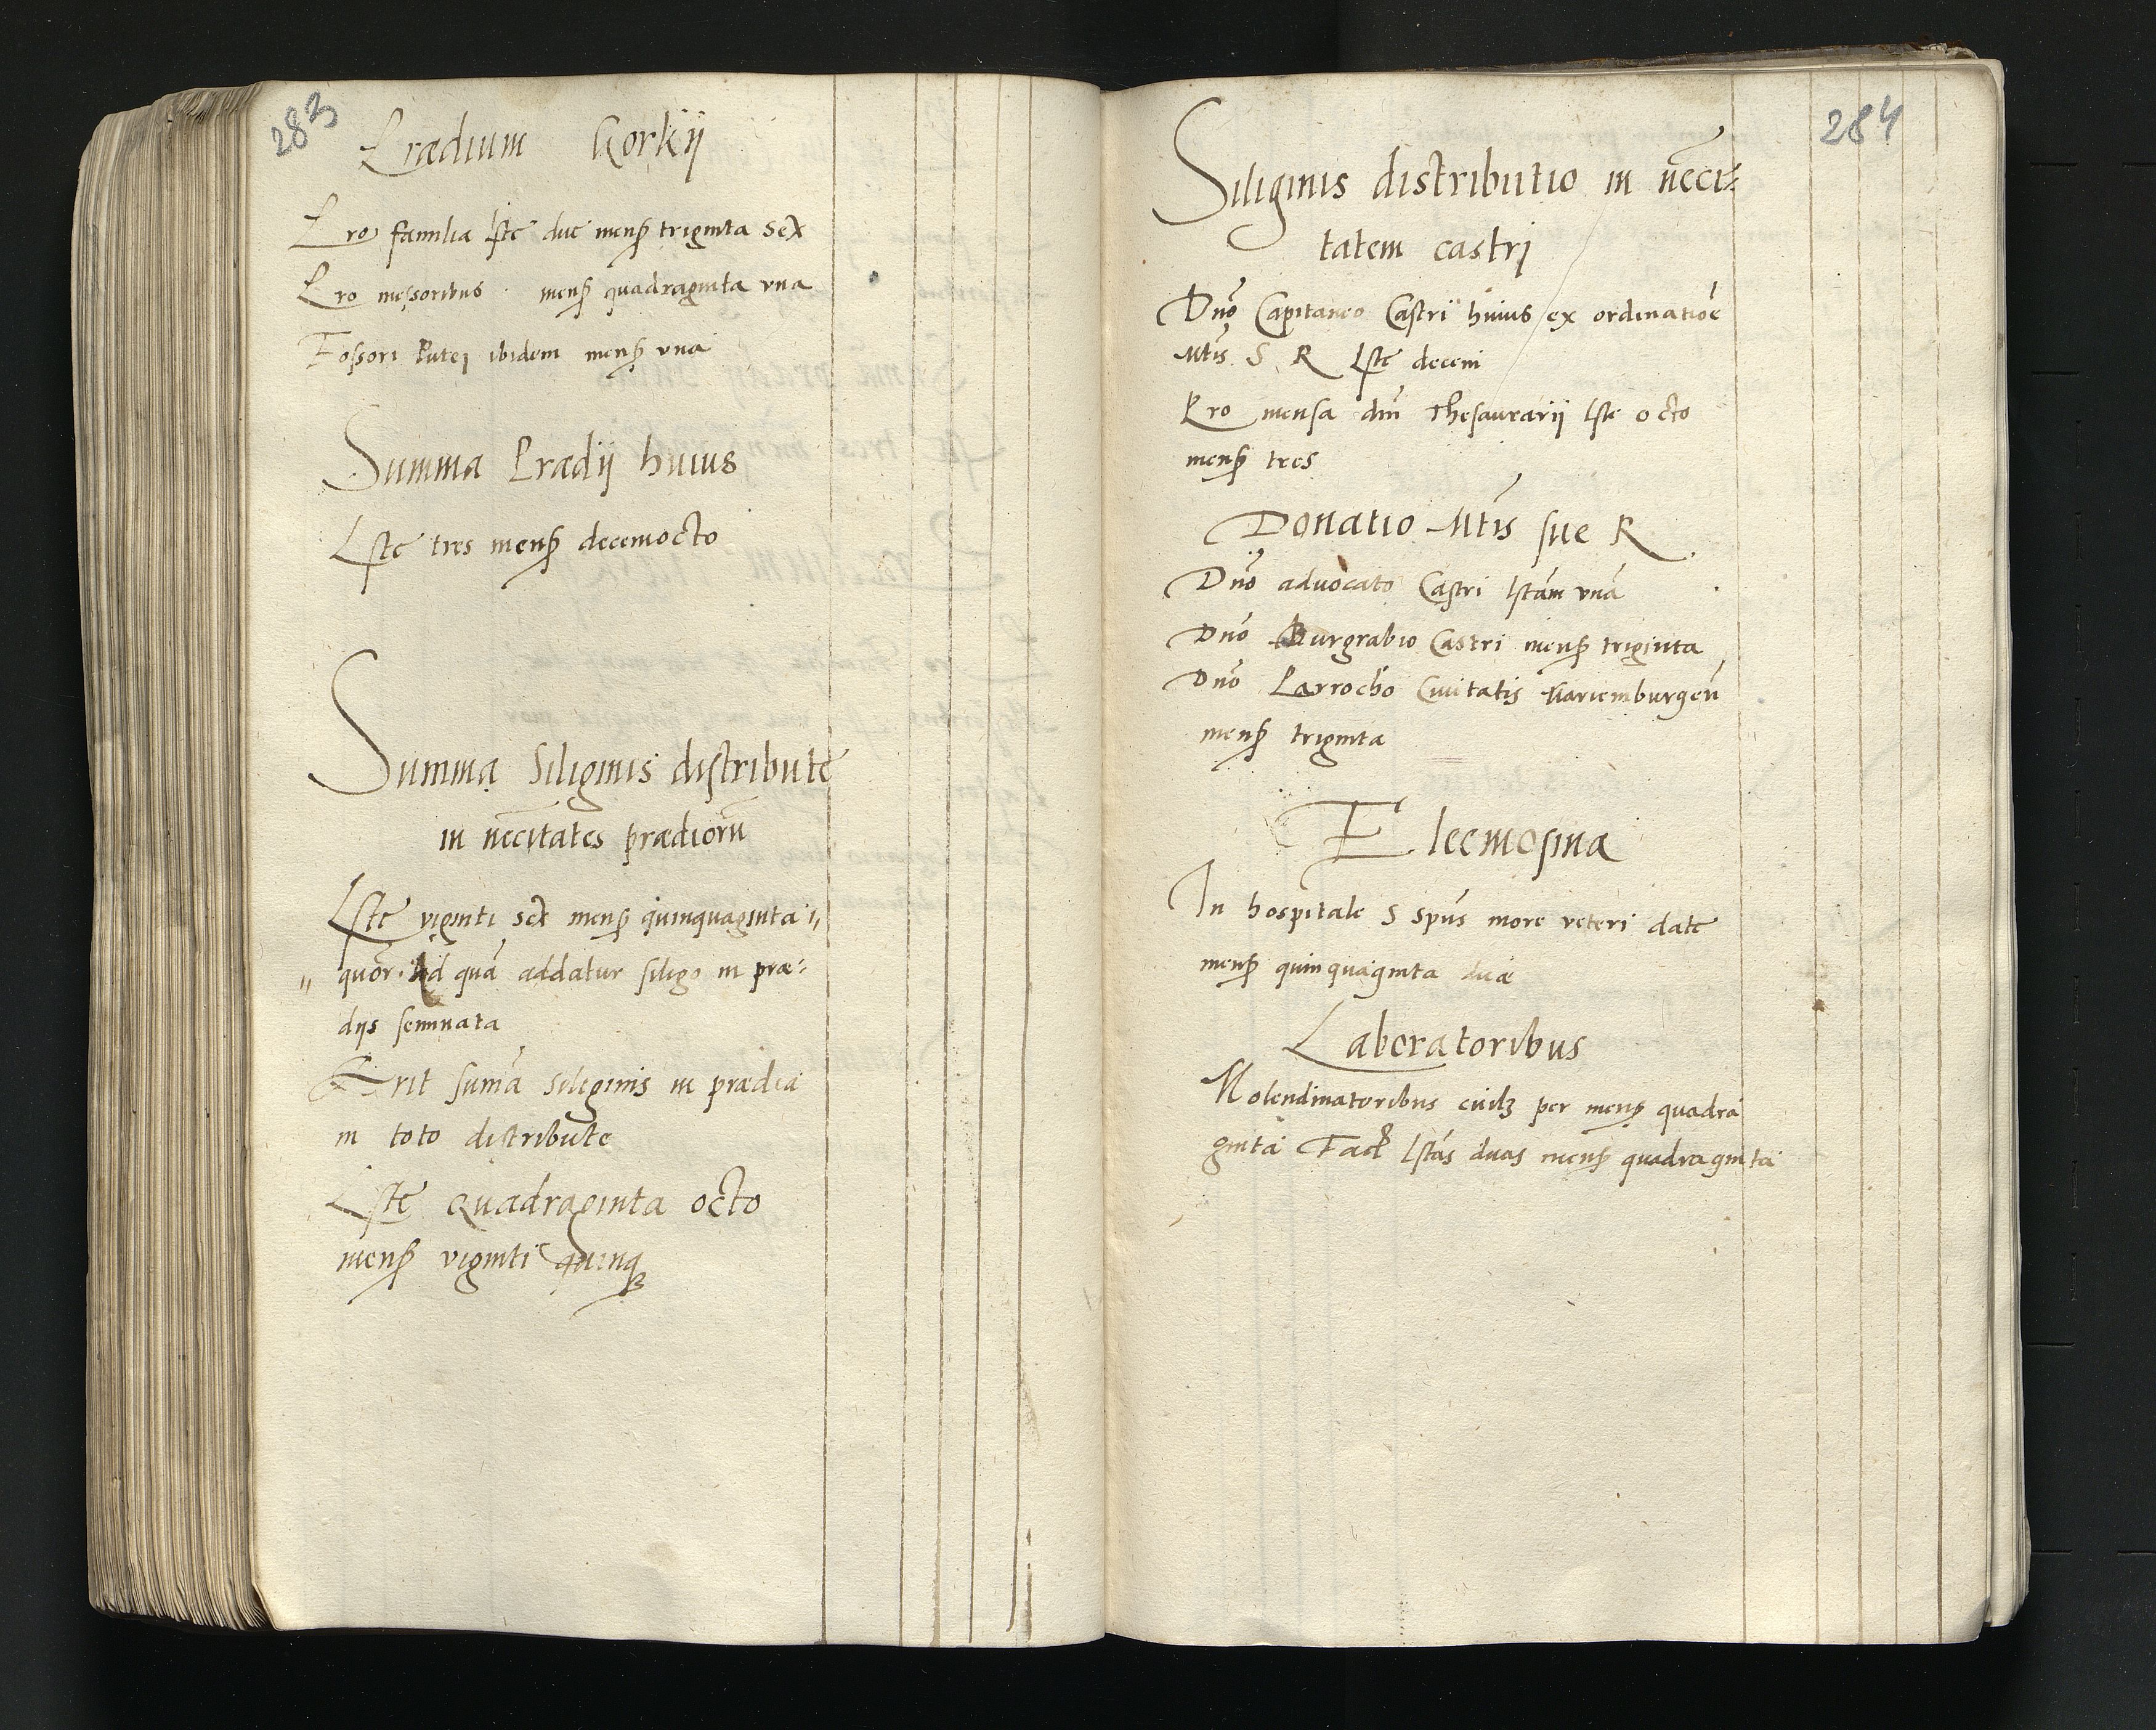 283
Prædium Gorkij
Pro familia lste due mens triginta sex
Pro messoribus mens quadraginta vna
Fossori Putej ibidem mens vna
Summa Prædij huius
Lste tres mens decemocto
Summa siliginis distribute
in necitates prædioru
Lste viginti sex mens quinquaginta
quor. Ad quā addatur siligo in præ=
dijs seminata
Erit sumā siliginis in prædia
in toto distribute
Lste quadraginta octo
mens viginti quinq
284
Siliginis distributio in neci=
tatem castrj
Dnō Capitaneo Castri huius ex ordinatiōe
Mtis S R Lste decem
Pro mensa dni Thesaurarij lste octo
mens tres
Donatio Mtis sue R
Dnō aduocato Castri lstām vnā
Dnō Burgrabio Castri mens triginta
Dnō Parrocho Ciuitatis Mariemburgen
mens triginta
Eleemosina
In hospitale S spūs more veteri date
mens quinquaginta duæ
Laboratoribus
Molendinatoribus cuilz per mens quadra
ginta Fact lstās duas mens quadraginta